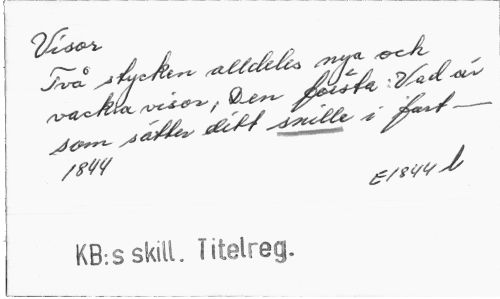 Visor
Två stycken alldeles nya och
vackra visor, Den första: Vad är
som sätter ditt snille i fart —
1844
E1844 b
KB:s skill. Titelreg.